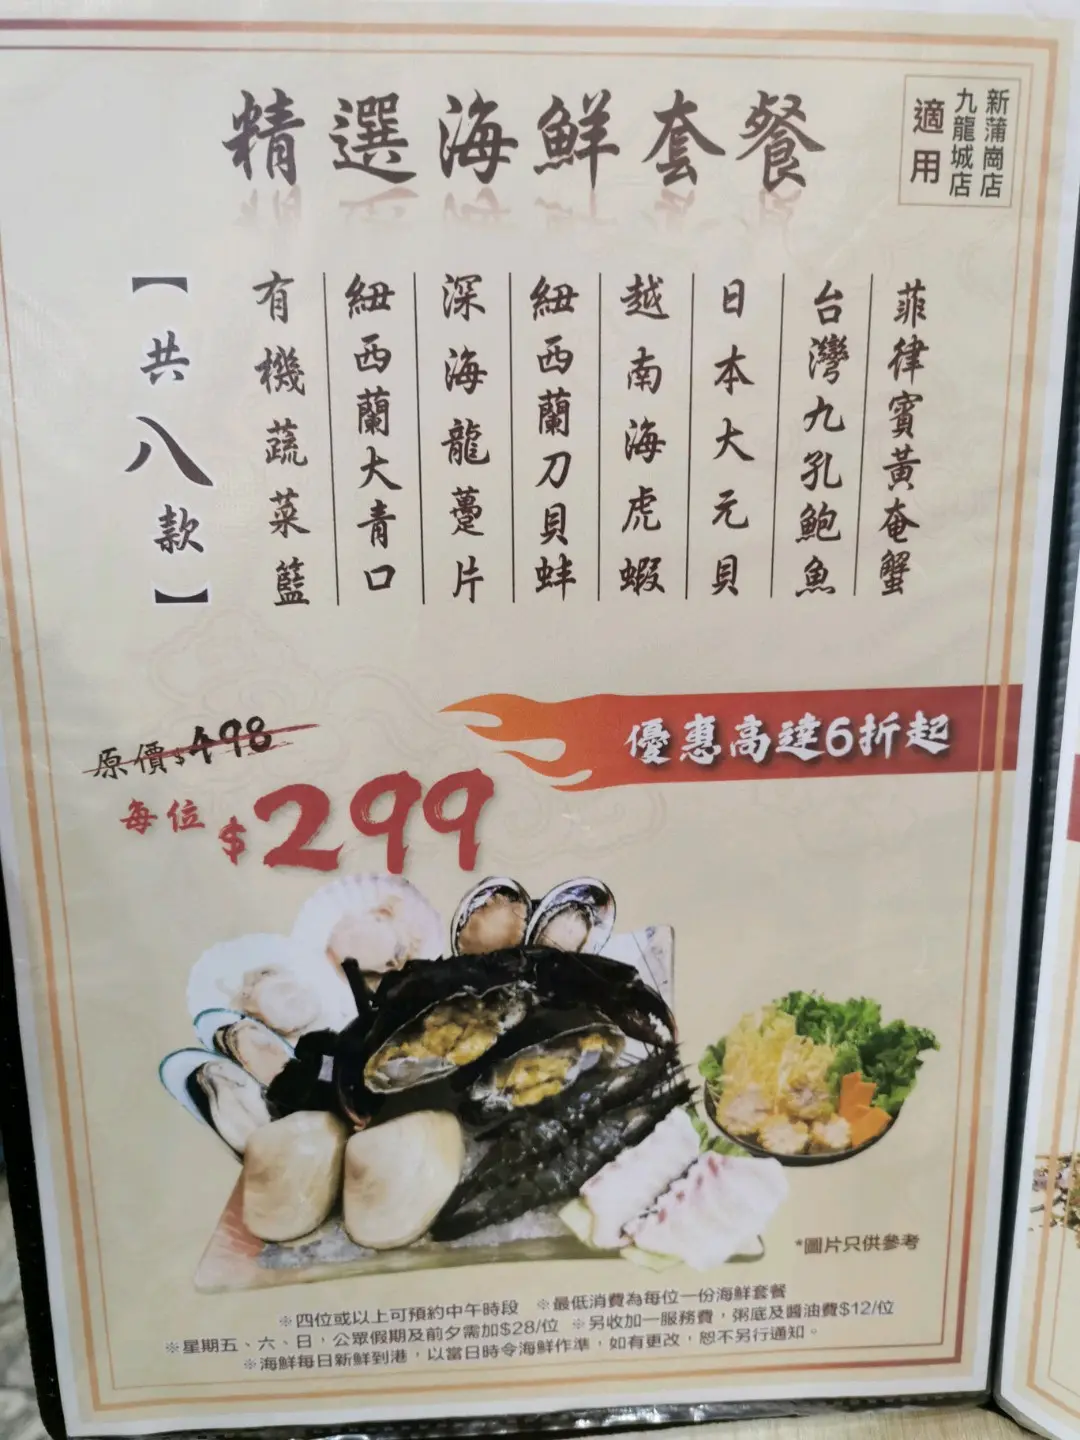 精選海鮮套餐
新蒲崗店
九龍城店
適用
菲律賓黃奄蟹
台灣九孔鮑魚
日本大元貝
越南海虎蝦
紐西蘭刀貝蚌
深海龍躉片
紐西蘭大青口
有機蔬菜籃
【共八款】
優惠高達6折起
原價$498
每位$299
*圖片只供參考
※四位或以上可預約中午時段 ※最低消費為每位一份海鮮套餐
※星期五、六、日，公眾假期及前夕需加$28/位 ※另收加一服務費，粥底及醬油費$12/位
※海鮮每日新鮮到港，以當日時令海鮮作準，如有更改，恕不另行通知。